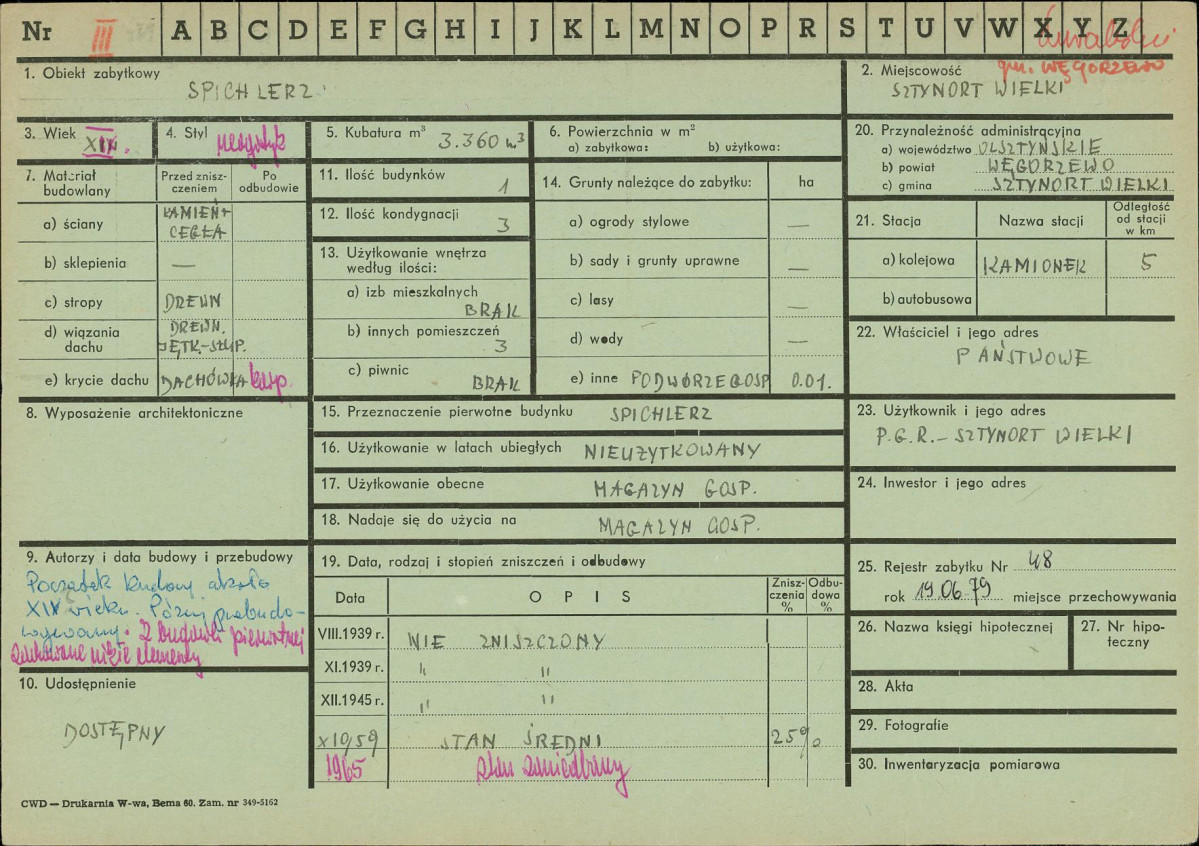 Nr III A B C D E F G H I J K L M N O P R S T U V W X Y Z
gm. WĘGORZEWO
1. Obiekt zabytkowy
SPICHLERZ
2. Miejscowość
SZTYNORT WIELKI
3. Wiek XIX.
4. Styl neogotyk
5. Kubatura m³ 3.360 m³
6. Powierzchnia w m²
a) zabytkowa: b) użytkowa:
7. Materiał budowlany
Przed zniszczeniem
Po odbudowie
a) ściany KAMIEŃ+
CEGŁA
b) sklepienia —
c) stropy DREWN
d) wiązania dachu DREWN.
JĘTK.-STUP.
e) krycie dachu DACHÓWKA karp.
8. Wyposażenie architektoniczne
9. Autorzy i data budowy i przebudowy
Początek budowy około
XIV wieku. Póżniej przebudo-
wywany. Z budowli pierwotnej
zachowane niższe elementy
10. Udostępnienie
DOSTĘPNY
11. Ilość budynków 1
12. Ilość kondygnacji 3
13. Użytkowanie wnętrza
według ilości:
a) izb mieszkalnych
BRAK
b) innych pomieszczeń
3
c) piwnic BRAK
14. Grunty należące do zabytku: ha
a) ogrody stylowe —
b) sady i grunty uprawne —
c) lasy —
d) wody —
e) inne PODWÓRZE GOSP 0.01.
15. Przeznaczenie pierwotne budynku SPICHLERZ
16. Użytkowanie w latach ubiegłych NIEUŻYTKOWANY
17. Użytkowanie obecne MAGAZYN GOSP.
18. Nadaje się do użycia na MAGAZYN GOSP.
19. Data, rodzaj i stopień zniszczeń i odbudowy
Data
O P I S
Znisz-
czenia
%
Odbu-
dowa
%
VIII.1939 r. NIE ZNISZCZONY
XI.1939 r. " "
XII.1945 r. " "
X10/59 STAN ŚREDNI 25%
1965 stan zaniedbany
20. Przynależność administracyjna
a) województwo OLSZTYŃSKIE
b) powiat WĘGORZEWO
c) gmina SZTYNORT WIELKI
21. Stacja
Nazwa stacji
Odległość
od stacji
w km
a) kolejowa KAMIONEK 5
b) autobusowa
22. Właściciel i jego adres
PAŃSTWOWE
23. Użytkownik i jego adres
P.G.R.-SZTYNORT WIELKI
24. Inwestor i jego adres
25. Rejestr zabytku Nr 48
rok 19.06.79 miejsce przechowywania
26. Nazwa księgi hipotecznej
27. Nr hipo-
teczny
28. Akta
29. Fotografie
30. Inwentaryzacja pomiarowa
CWD — Drukarnia W-wa, Bema 60. Zam. nr 349-5162